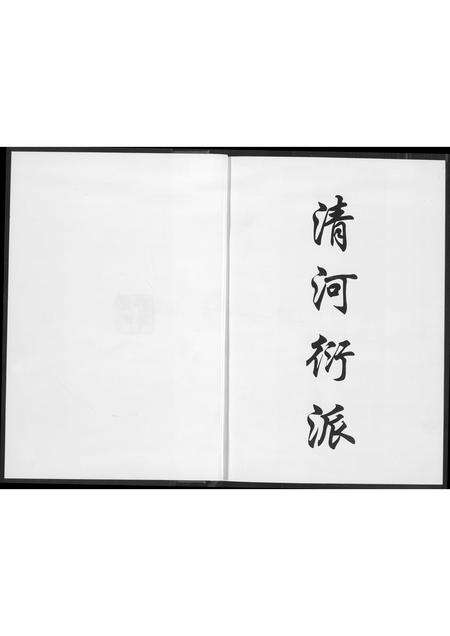 清河衍派